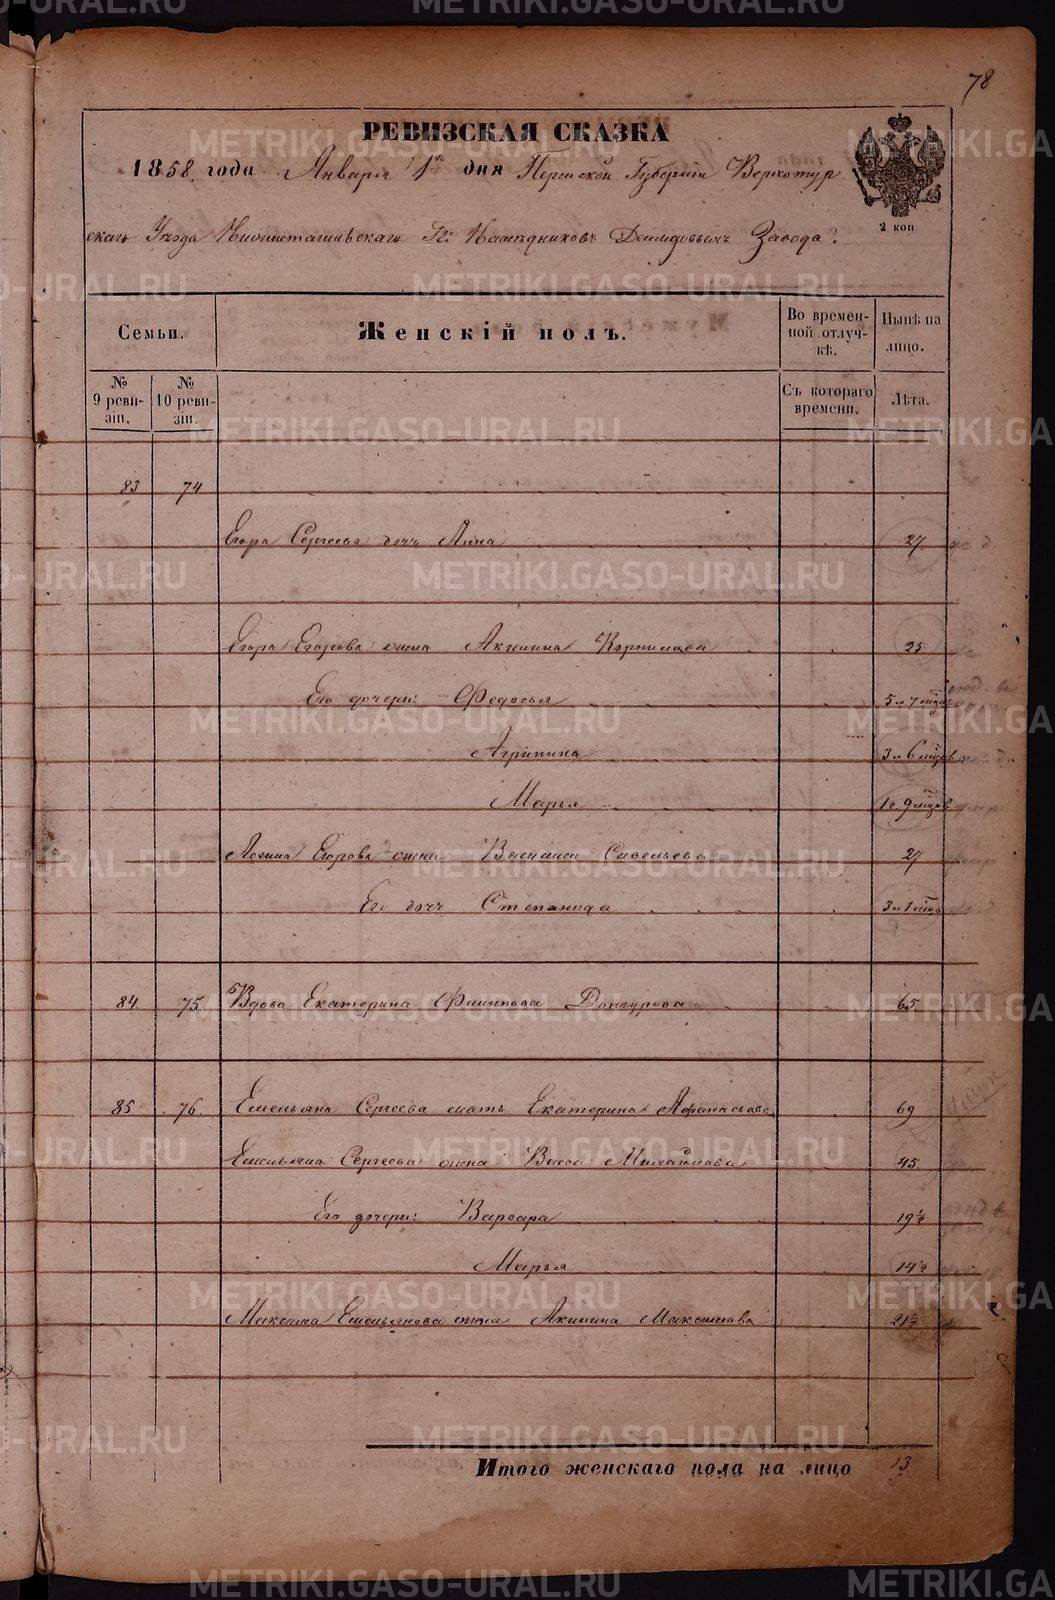 78
РЕВИЗСКАЯ СКАЗКА
1858 года Января 1го дня Пермской Губернiи Верхотур
скаго Уѣзда Нижнетагильскаго Гг: Наслѣдниковъ Демидовыхъ Завода.
2 коп
Семьи.
Женскiй полъ.
Во времен-
ной отлуч-
кѣ.
Нынѣ на
лицо.
№
9 реви-
зiи.
№
10 реви-
зiи.
Съ котораго
времени.
Лѣта.
83 74
Егора Сергеева дочь Анна 27
Егора Егорова жена Акилина Корнилова 25
Его дочери: Федосья 5 и 7 мѣсцов
Агрипина 3 и 6 мѣсцов
Марья 1 г. 9 мѣсцов
Логина Егорова жена Васила Савельева 27
Его дочь Степанида 3 и 1 мѣсц
84 75. Вдова Екатерина Филипова 65
85 76. Емельяна Сергеева мать Екатерина Афанасьева 69
Емельяна Сергеева жена Васса Михайлова 45.
Его дочери: Варвара 19½
Марья 14½
Максима Емельянова жена Акилина Максимова 21½
Итого женскаго пола на лицо 13
METRIKI.GASO-URAL.RU